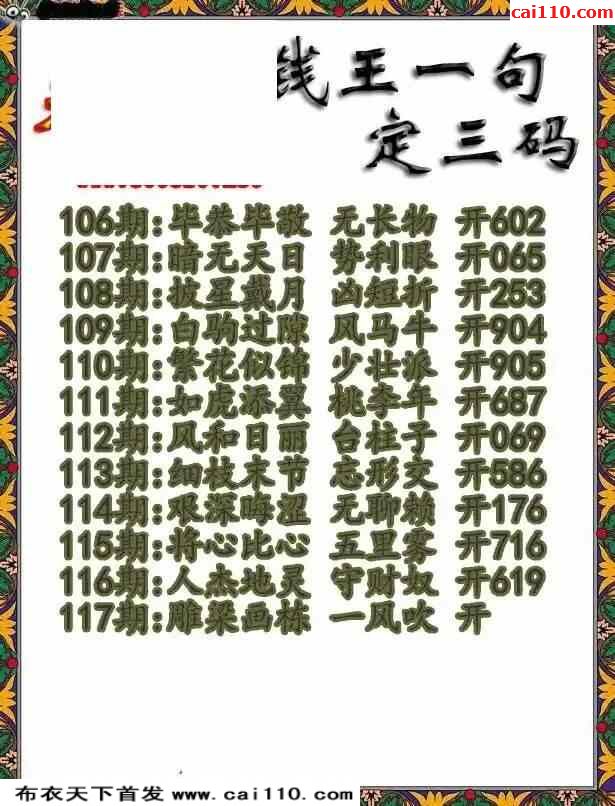 cai110.com
线王一句
定三码
106期:毕恭毕敬 无长物 开602
107期:暗无天日 势利眼 开065
108期:披星戴月 凶短折 开253
109期:白驹过隙 风马牛 开904
110期:繁花似锦 少壮派 开905
111期:如虎添翼 桃李年 开687
112期:风和日丽 台柱子 开069
113期:细枝末节 忘形交 开586
114期:艰深晦涩 无聊赖 开176
115期:将心比心 五里雾 开716
116期:人杰地灵 守财奴 开619
117期:雕梁画栋 一风吹 开
布衣天下首发 www.cai110.com